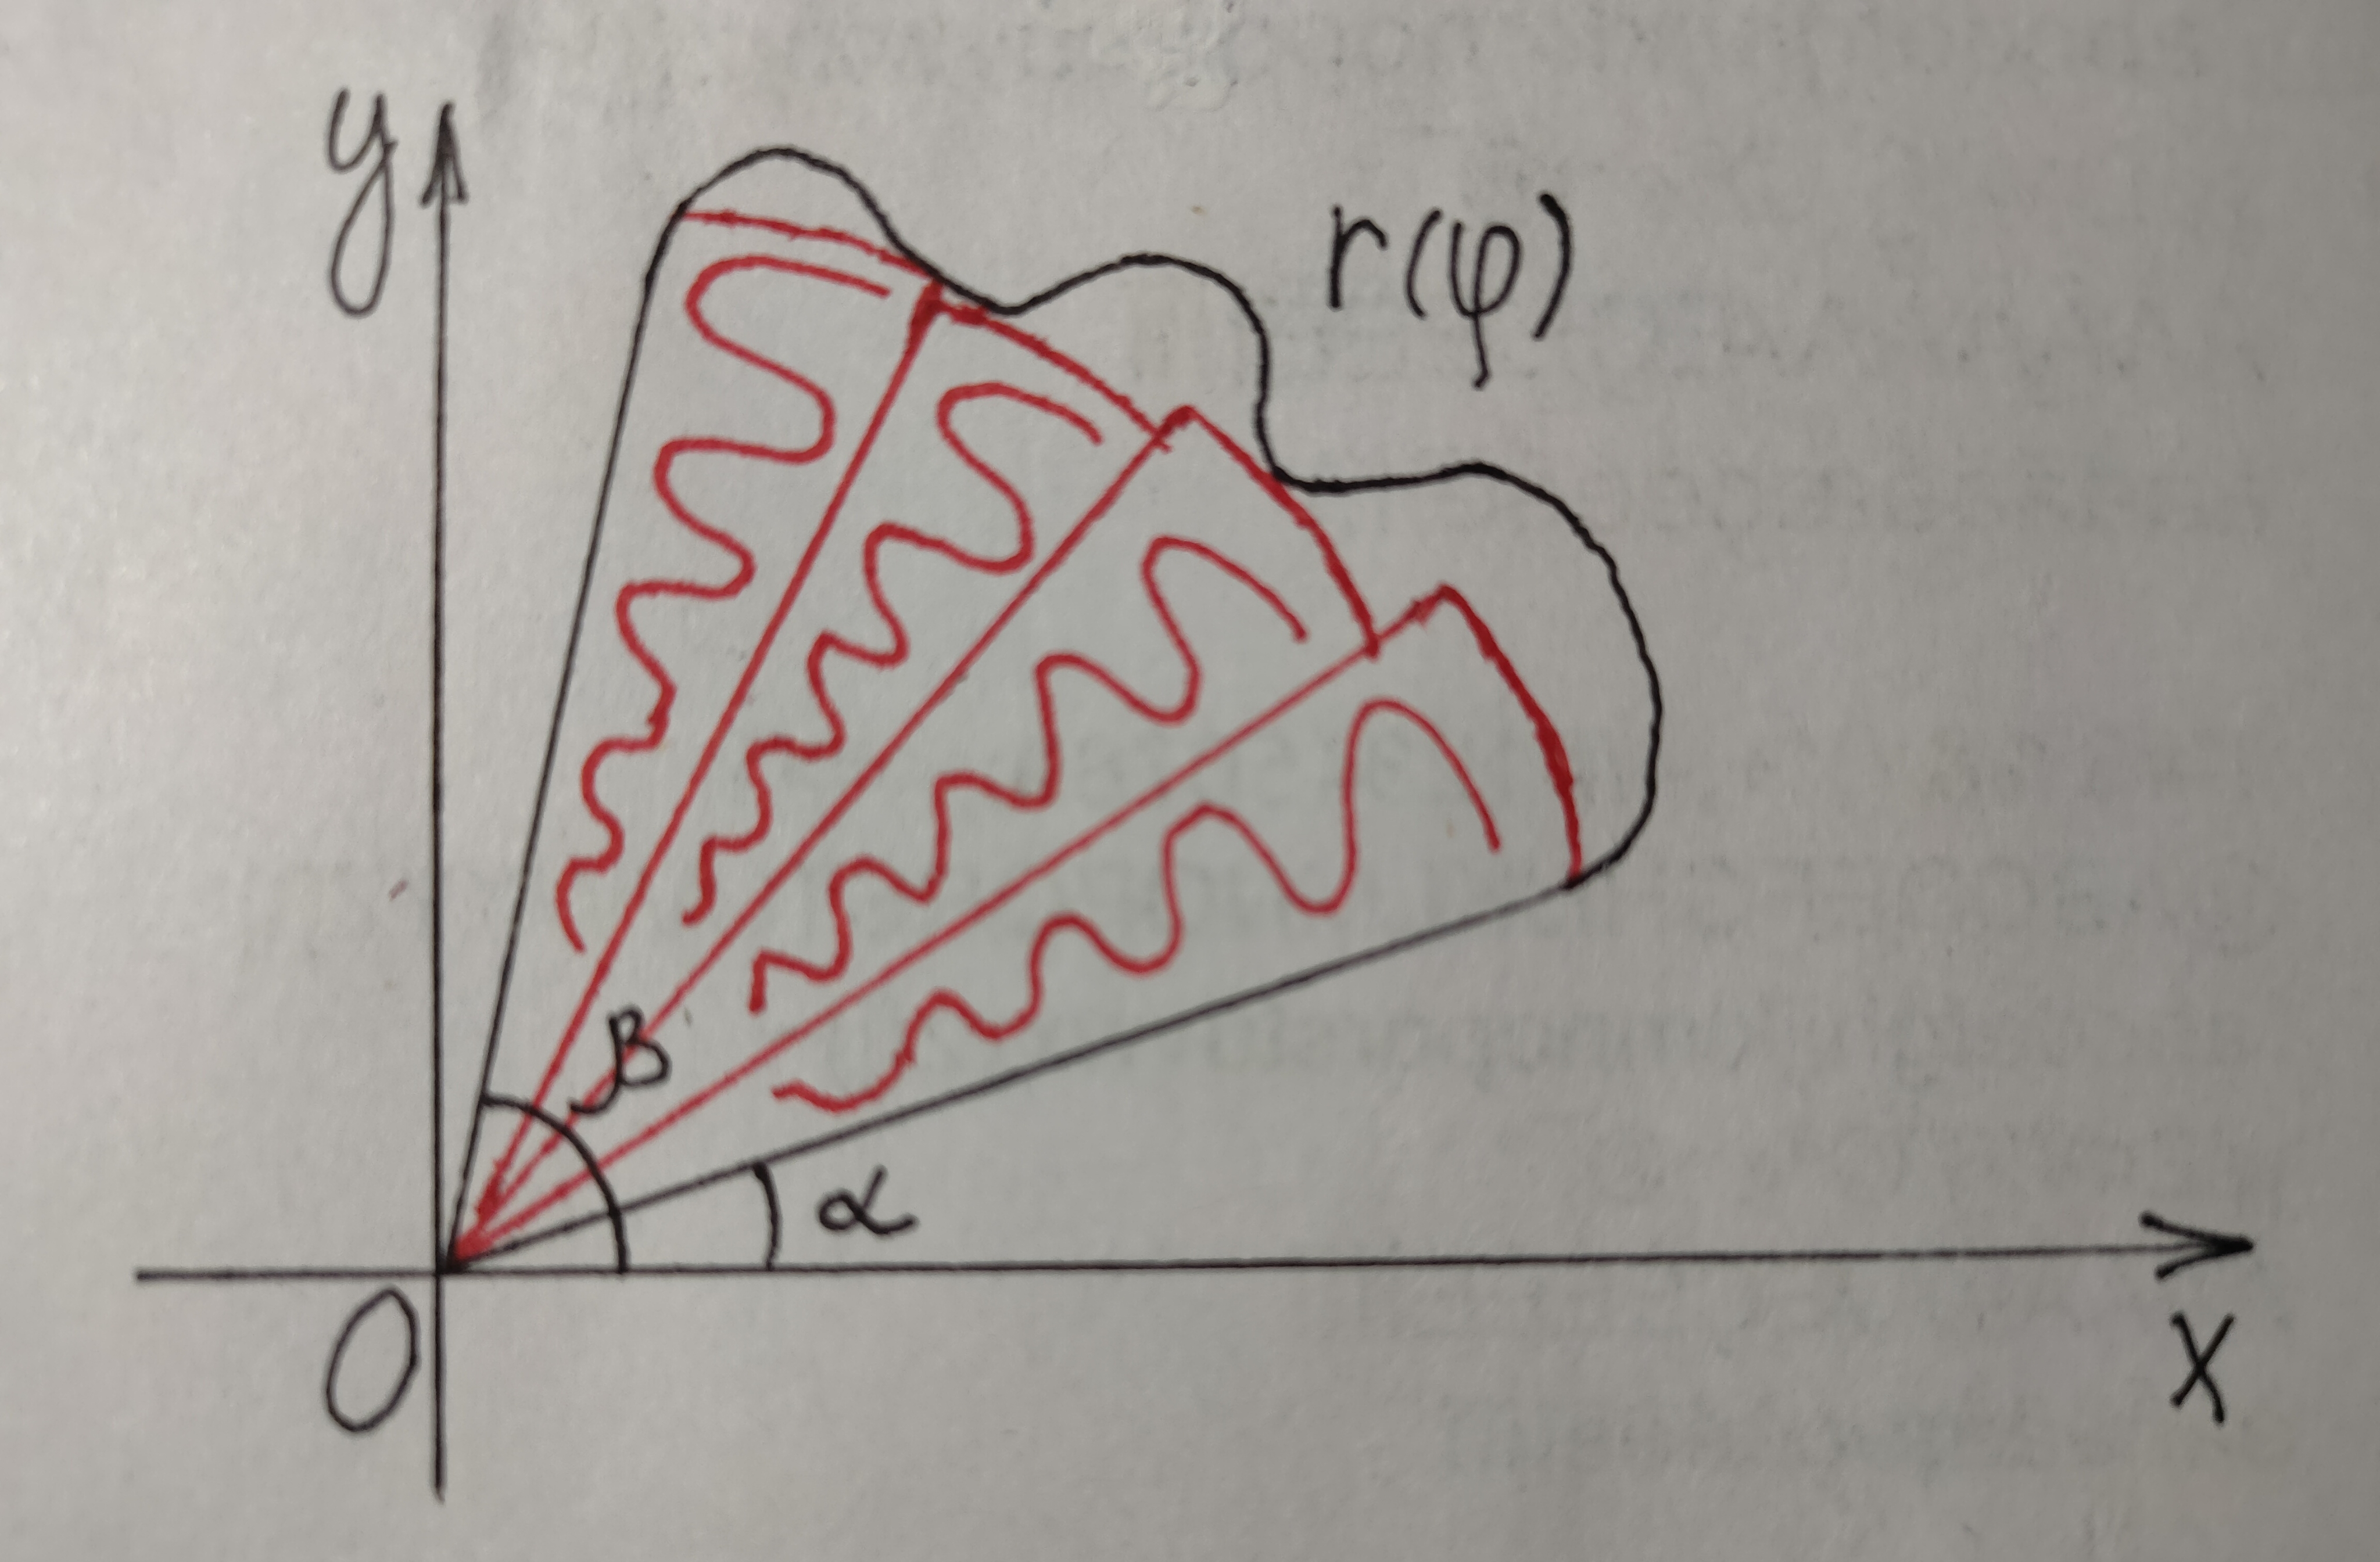 y
r(φ)
β
α
O
x